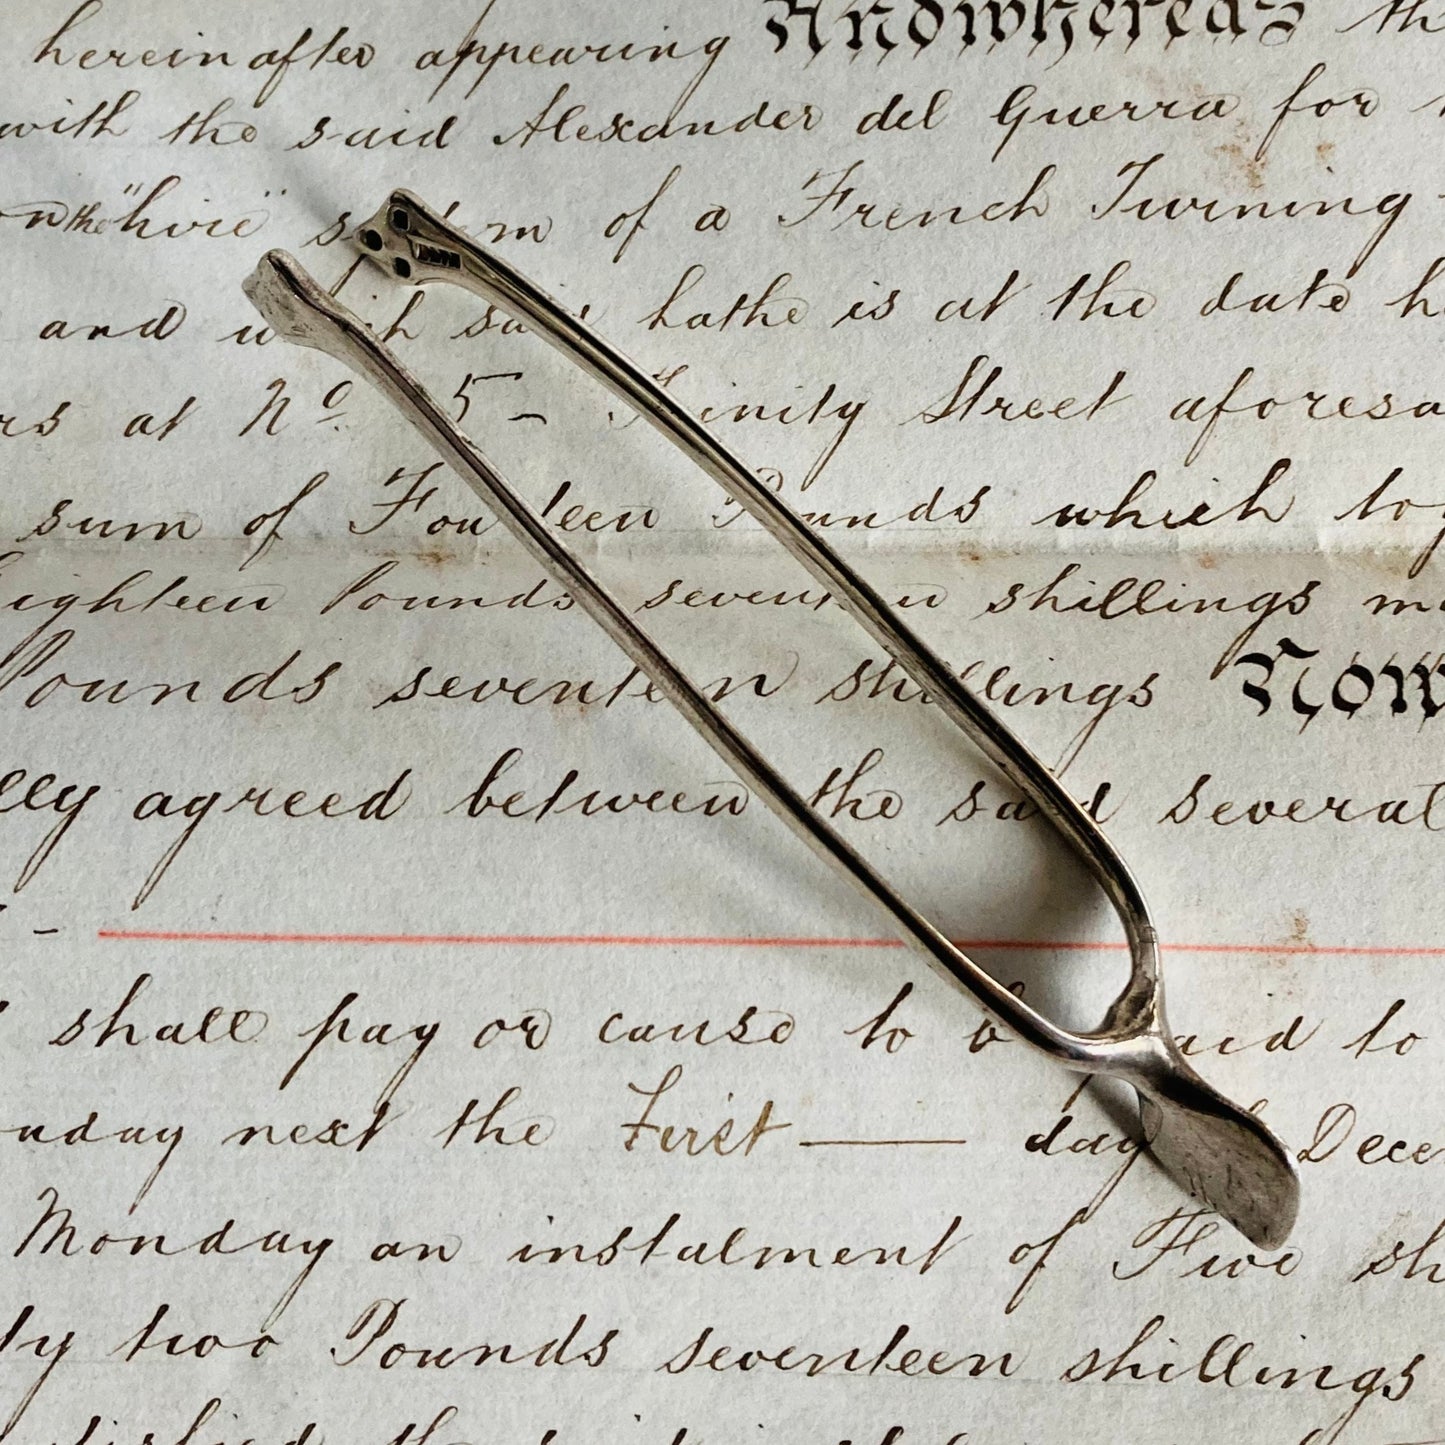 hereinafter appearing Andwhereas the
with the said Alexander del Guerra for
on the "hire" system of a French Turning
and which said Lathe is at the date
at No. 5 - Trinity Street
sum of Fourteen Pounds which
Eighteen Pounds seventeen shillings
Pounds seventeen shillings Now
agreed between the said several
-
shall pay or cause to be paid to
next the First — day of
Monday an instalment of Five
two Pounds seventeen shillings